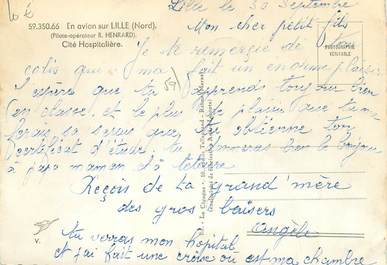 Lille le 30 Septembre
59.350.66 En avion sur LILLE (Nord).
(Pilote-opérateur R. HENRARD).
Cité Hospitalière.
PHOTOGRAPHIE
VERITABLE
Mon cher petit fils
Je te remercie de ton
colis qui m'a fait un enorme plaisir
j'espère que tu apprends toujours bien
en classe, et le plus plaisir que tu me
feras sa seras que tu obtienne ton
certificat d'étude, tu donneras bien le bonjour
a papa maman et à
Reçois de La grand'mère
des gros baisers
Angèle
tu verras mon hôpital
et j'ai fait une croix ou est ma chambre
V.